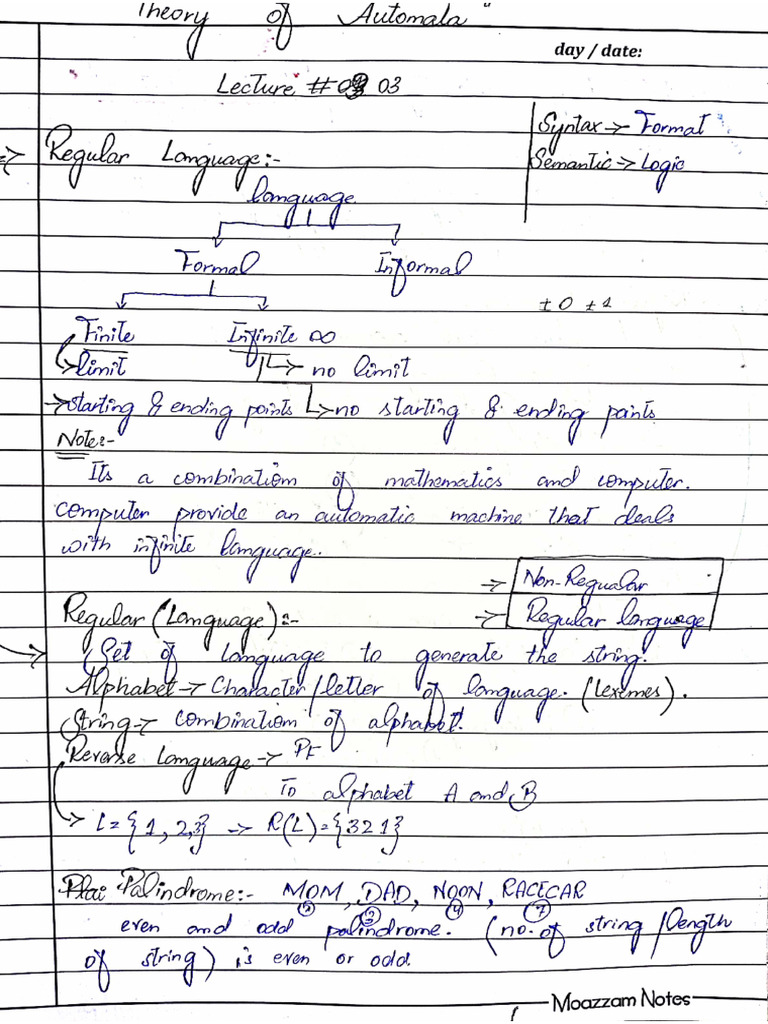 Theory of Automala "
day / date:
Lecture # 03 03
Syntax → Format
Semantic → Logic
⇒ Regular Language:-
language
Formal Informal
± 0 ± 1
Finite Infinite ∞
→ limit → no limit
→ starting & ending points → no starting & ending points
Note:-
Its a combination of mathematics and computer.
computer provide an automatic machine that deals
with infinite language.
→ Non-Regualar
→ Regular language
Regular (Language):-
→ (Set of language to generate the string.
Alphabet → Character/letter of language. (Lexemes).
String → combination of alphabet.
Reverse Language →
To alphabet A and B
→ L = {1, 2, 3} → R(L) = {3 2 1}
Plai Palindrome:- MOM, DAD, NOON, RACECAR
③ ③ ④ ⑦
even and odd palindrome. (no. of string / length
of string) is even or odd.
Moazzam Notes